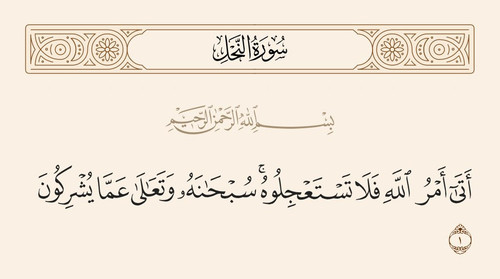 سُورَةُ النَّحْلِ
بِسْمِ اللَّهِ الرَّحْمَٰنِ الرَّحِيمِ
أَتَىٰٓ أَمْرُ ٱللَّهِ فَلَا تَسْتَعْجِلُوهُ ۚ سُبْحَـٰنَهُۥ وَتَعَـٰلَىٰ عَمَّا يُشْرِكُونَ
١